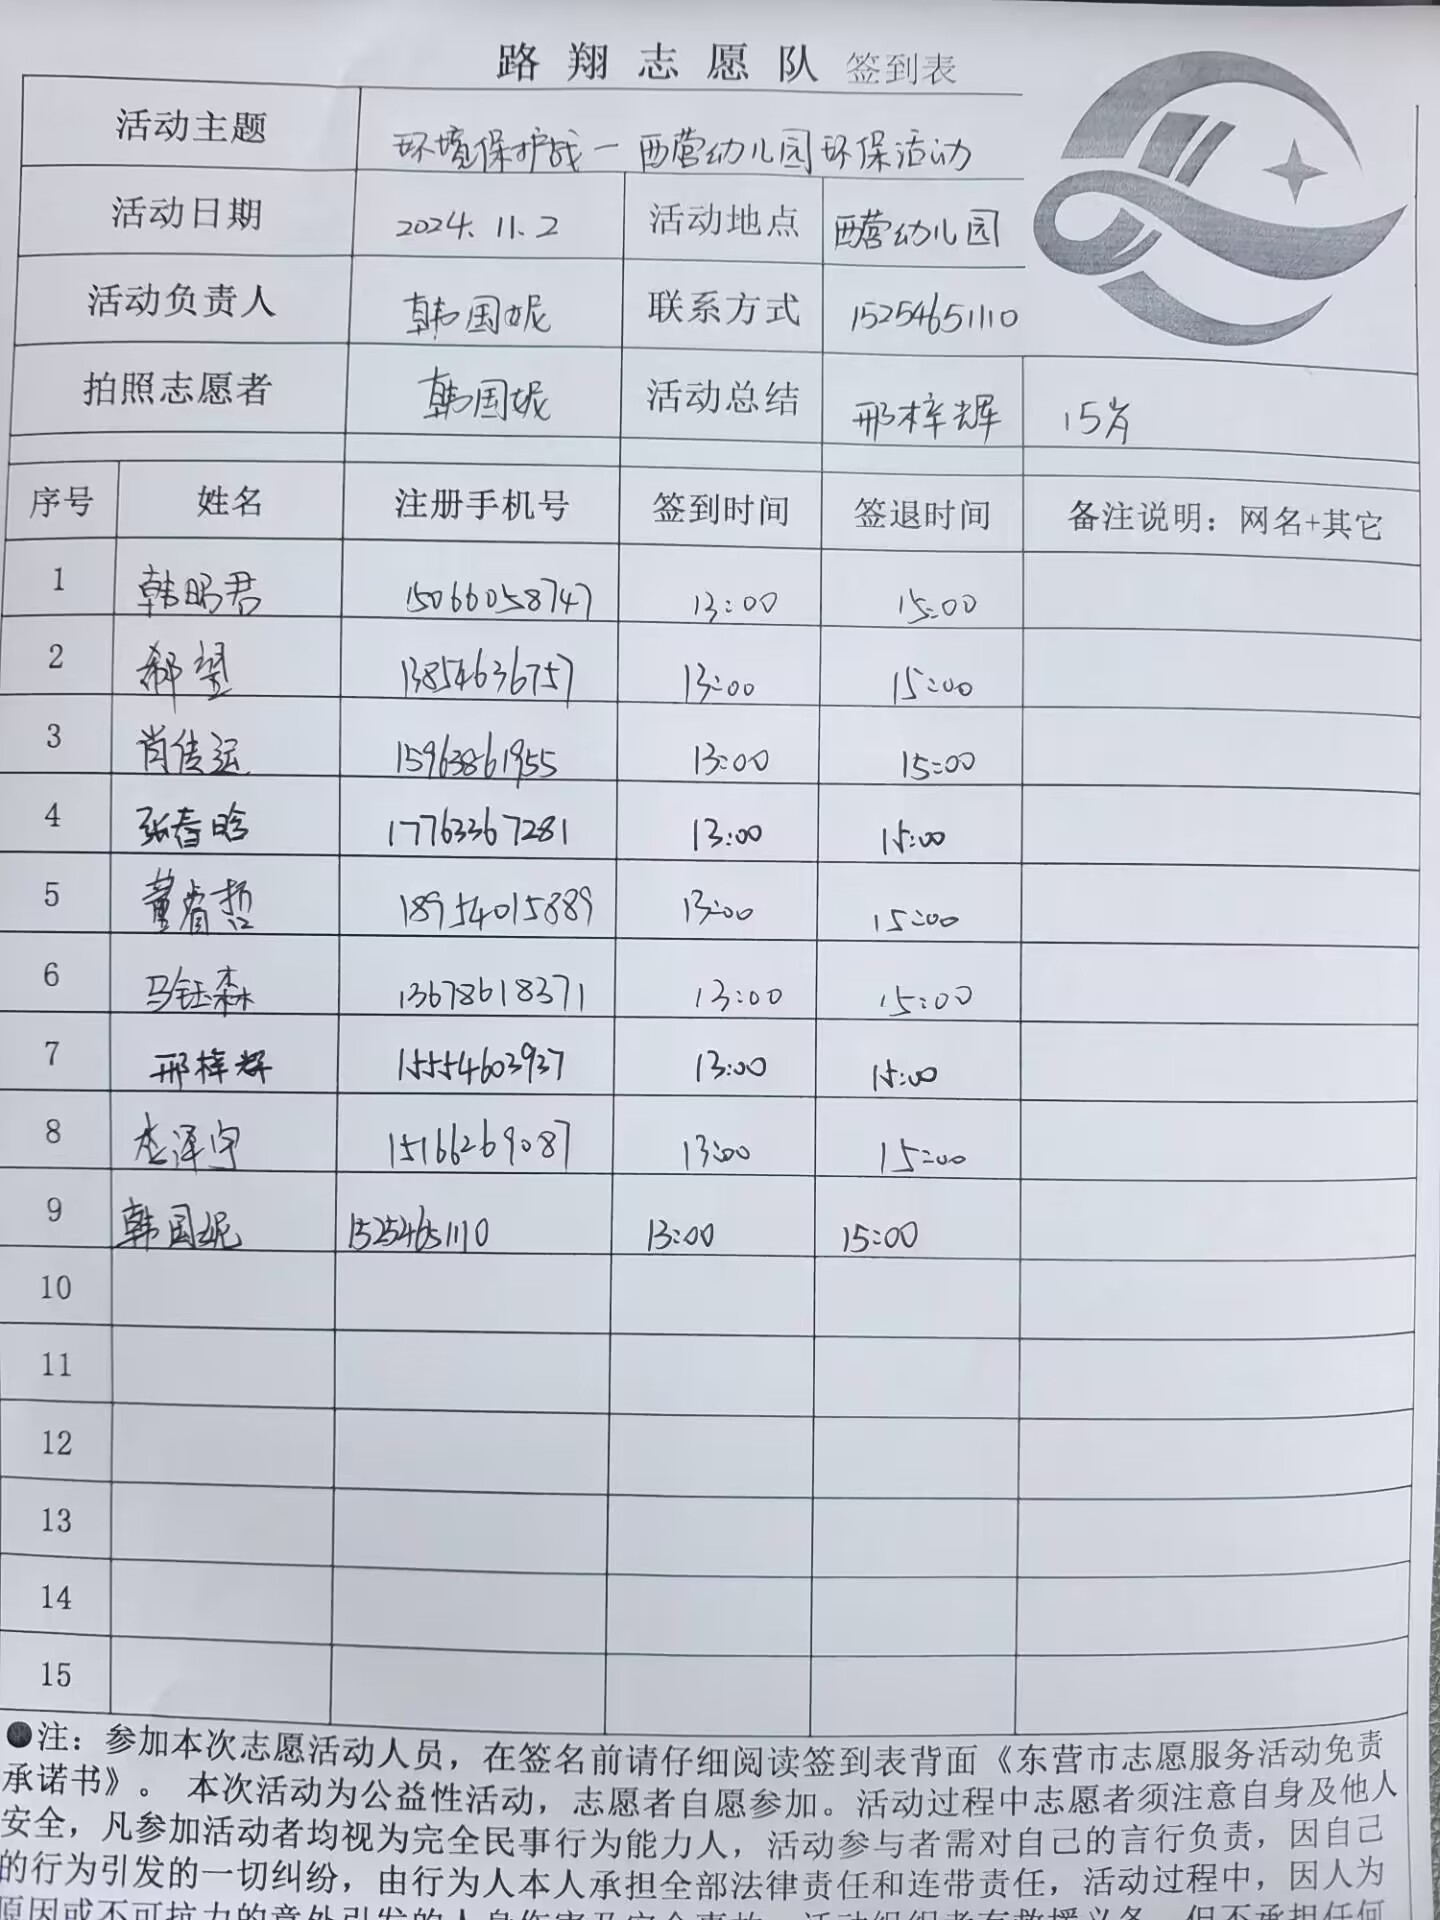 路翔志愿队 签到表
活动主题 环境保护战一西营幼儿园环保活动
活动日期 2024.11.2 活动地点 西营幼儿园
活动负责人 韩国妮 联系方式 15254651110
拍照志愿者 韩国妮 活动总结 邢梓辉 15岁
序号 姓名 注册手机号 签到时间 签退时间 备注说明：网名+其它
1 韩明君 15066058747 13:00 15:00
2 郝望 13854636757 13:00 15:00
3 肖传运 15963861955 13:00 15:00
4 张春晗 17763367281 13:00 15:00
5 董睿哲 18954015889 13:00 15:00
6 马钰森 13678618371 13:00 15:00
7 邢梓辉 15554603937 13:00 15:00
8 李泽宇 15166269087 13:00 15:00
9 韩国妮 15254651110 13:00 15:00
10
11
12
13
14
15
●注：参加本次志愿活动人员，在签名前请仔细阅读签到表背面《东营市志愿服务活动免责
承诺书》。 本次活动为公益性活动，志愿者自愿参加。活动过程中志愿者须注意自身及他人
安全，凡参加活动者均视为完全民事行为能力人，活动参与者需对自己的言行负责，因自己
的行为引发的一切纠纷，由行为人本人承担全部法律责任和连带责任，活动过程中，因人为
原因或不可抗力的意外引发的人身伤害及安全事故，活动组织者有救援义务，但不承担任何